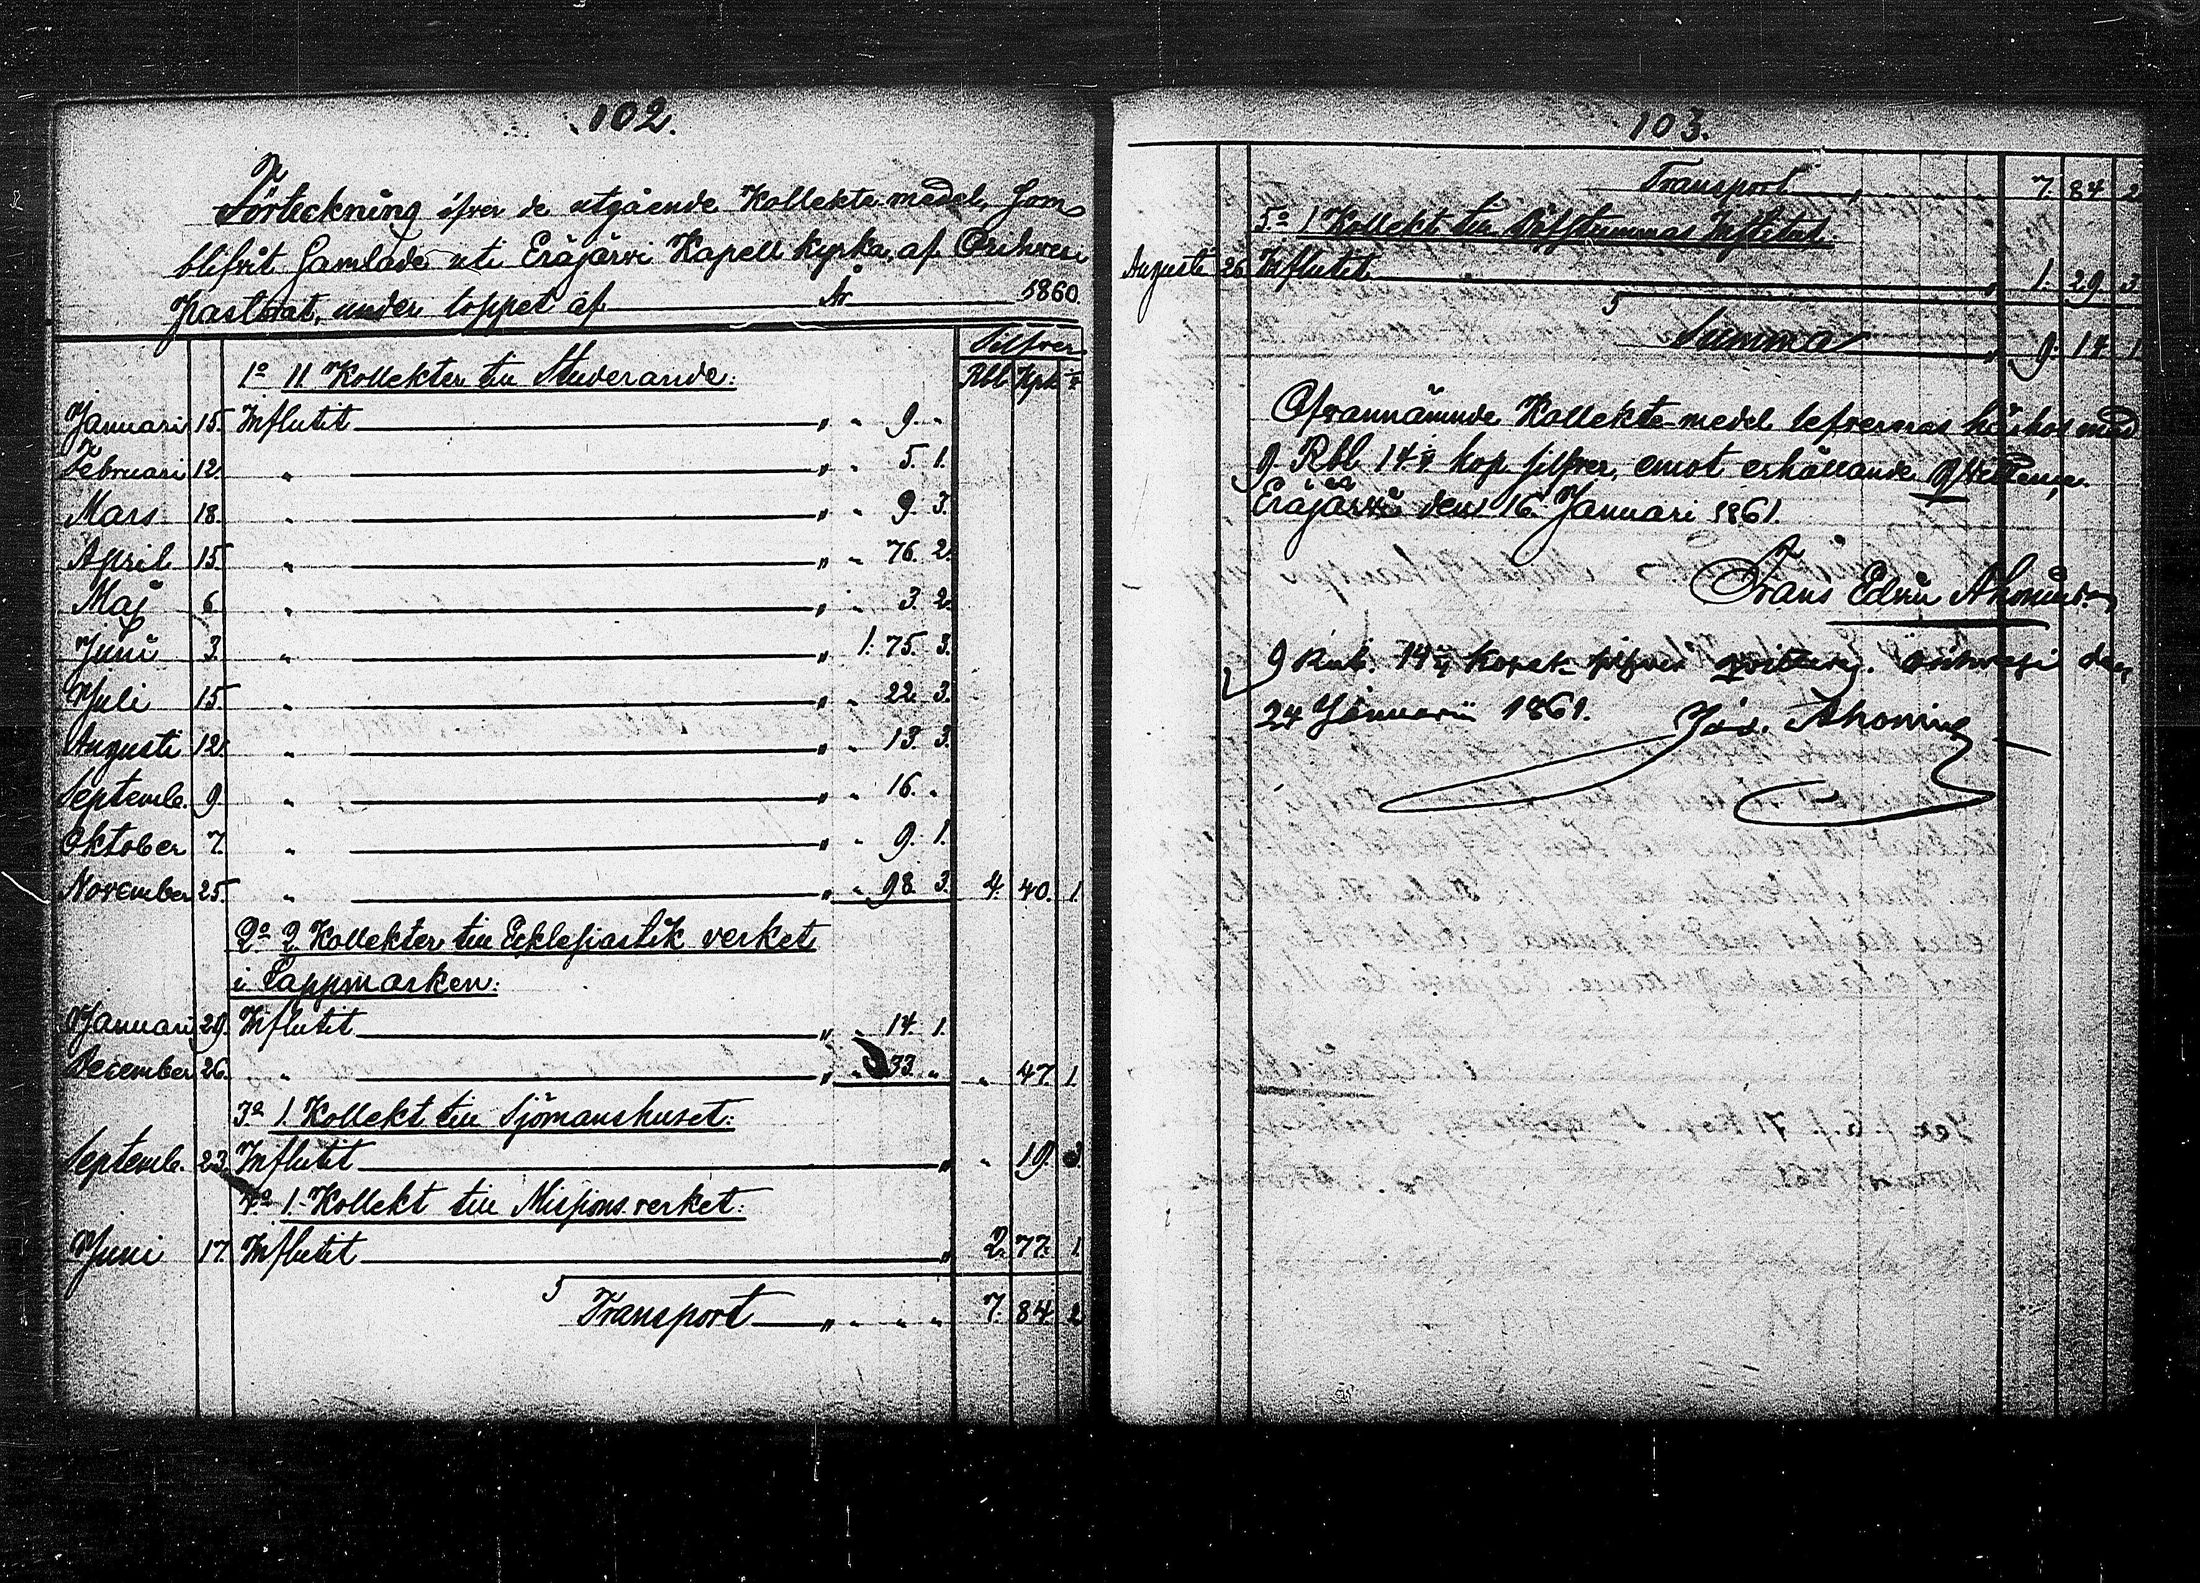 102.
Förteckning öfver de utgående Kollekte medel, Som
blifvit Samlade uti Eräjärvi Kapell kyrka, af Orihvesi
Pastorat, under loppet af År 1860.
Silfver
Rbl. Kpk ¼
1º 11 Kollekter till Studerande:
Januari 15. Influtit " " 9. "
Februari 12. " " " 5. 1.
Mars 18. " " " 9. 3.
April 15 " " " 76. 2.
Maj 6. " " " 3. 2.
Juni 3. " " 1. 75. 3.
Juli 15 " " " 22. 3.
Augusti 12. " " " 13. 3.
Septemb. 9. " " " 16. "
Oktober 7. " " " 9. 1.
November 25. " " " 98. 3. 4. 40. 1.
2º 2 Kollekter till Ecklesiastik verket
i Lappmarken:
Januari 29. Influtit " " 14. 1.
December 26. " " " 33. " " 47. 1.
3º 1. Kollekt till Sjömanshuset:
Septemb. 23. Influtit " " 19. 3.
4º 1. Kollekt till Missions verket:
Juni 17. Influtit " 2. 77. 1.
Transport " " " " 7. 84. 2
103.
Transport " 7. 84. 2
5º 1 Kollekt till Döfstummas Institut.
Augusti 26 Influtit " 1. 29. 3
Summa " 9. 14. 1.
Ofvannämnde Kollekte-medel lefvereras härhos med
9 Rbl. 14 ¼ kop. silfver, emot erhållande qvittence.
Eräjärvi den 16. Januari 1861.
Frans Edvin
9 Rub. 14 ¼ Kopek silfver qvitteras. Orihvesi den
24 Januarii 1861. Jos. Ahoning